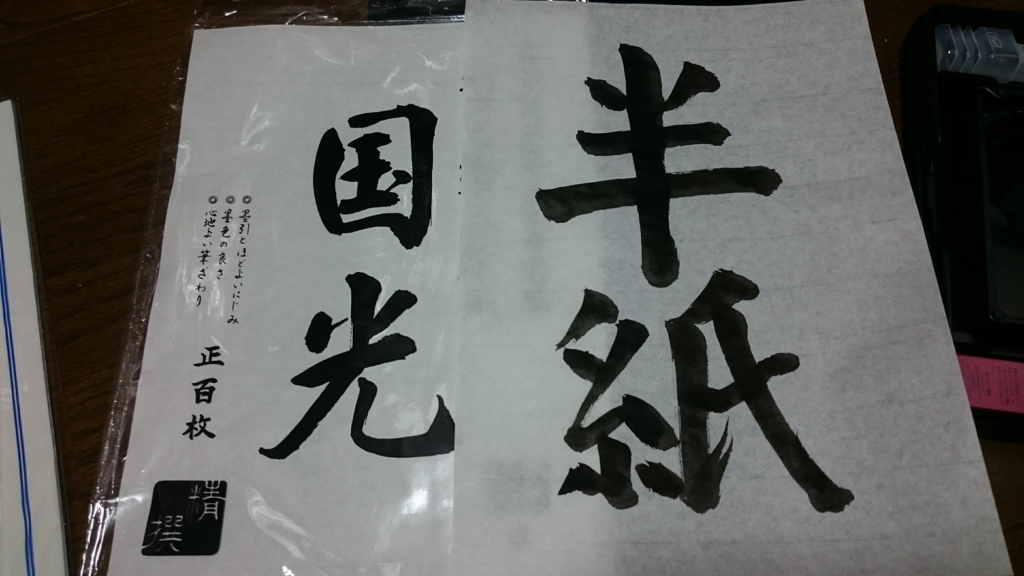 半紙
国光
墨引とほどよいにじみ
墨色の良さ
心地よい筆ざわり
正百枚
精撰